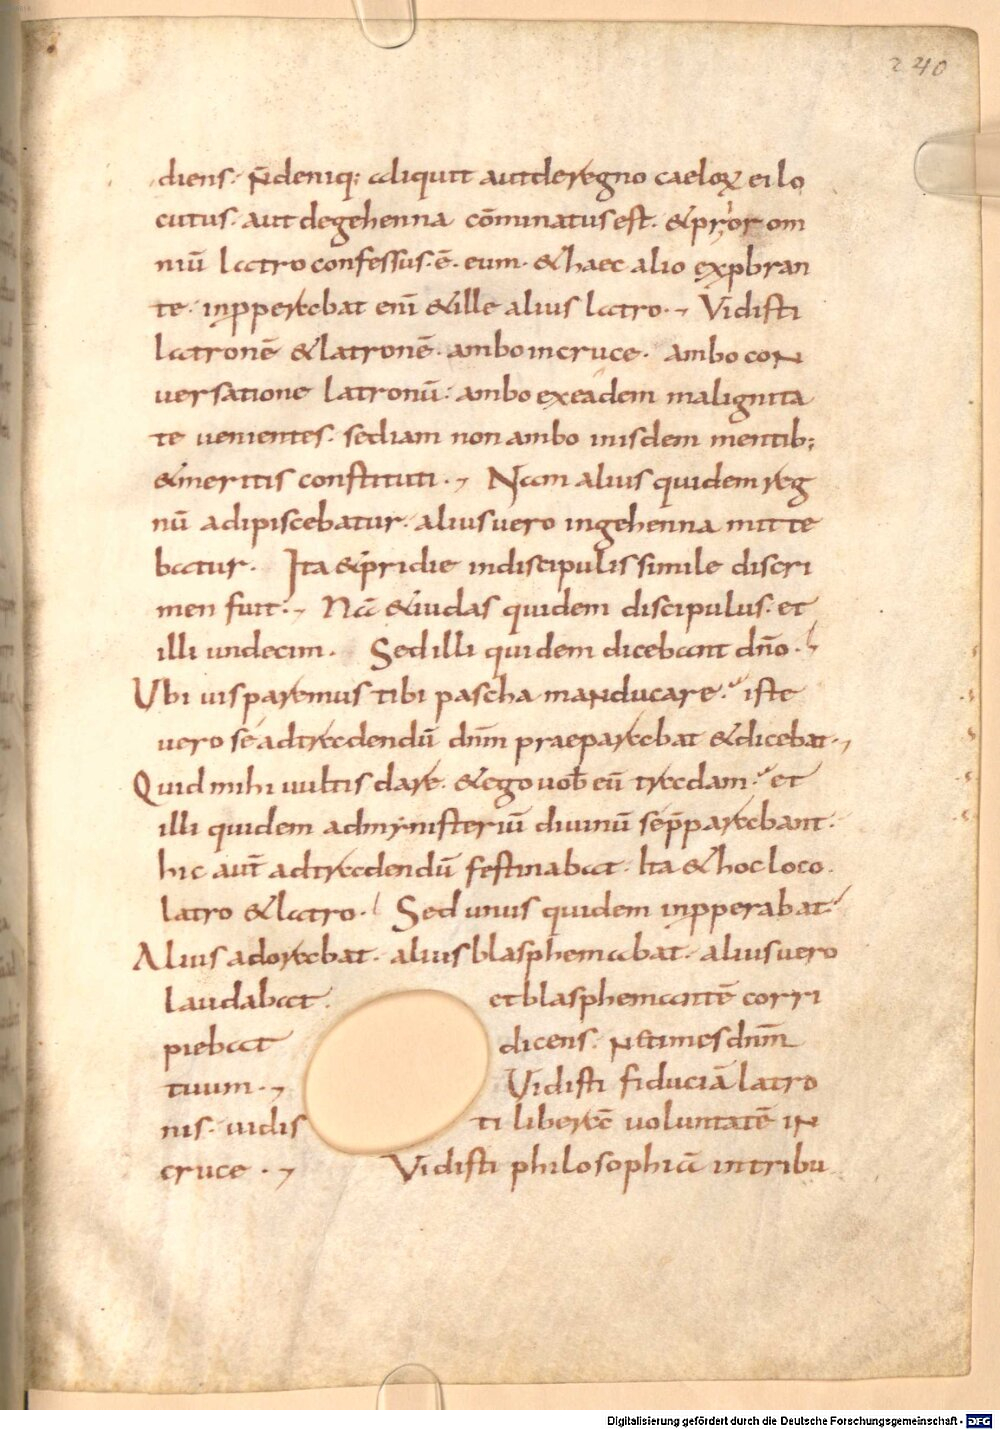 240
diens. N̄ deniq; aliquit aut de regno caeloꝝ ei lo
cutus. aut de gehenna cōminatus est. & prior om
niū latro confessus. ē. eum. & haec alio expbran
te. inpperabat eni̅ & ille alius latro. Vidisti
latronē & latronē. ambo in cruce. ambo con
uersatione latronū: ambo ex eadem malignita
te uenientes. sed iam non ambo in isdem mentib;
& meritis constituti. Nam alius quidem reg
nū adipiscebatur. alius uero in gehenna mitte
batur. Ita & pridie in discipulis simile discri
men fuit. Nā & iudas quidem discipulus. et
illi undecim. Sed illi quidem dicebant dn̄o.
Ubi uis paremus tibi pascha manducare. iste
uero se ad tradendū dnm̄ praeparabat & dicebat.
Quid mihi uultis dare. & ego uob̅ eū tradam. et
illi quidem ad mynisteriū diuinū se p̄parabant.
hic aut̄ ad tradendū festinabat. Ita & hoc loco.
latro & latro. Sed unus quidem inpperabat
Alius adorabat. alius blasphemabat. alius uero
laudabat. et blasphemantē corri
piebat dicens. N̄ times dnm̄
tuum. Vidisti fiduciā latro
nis. uidis ti liberā uoluntatē in
cruce. Vidisti philosophiā in tribu
Digitalisierung gefördert durch die Deutsche Forschungsgemeinschaft - DFG